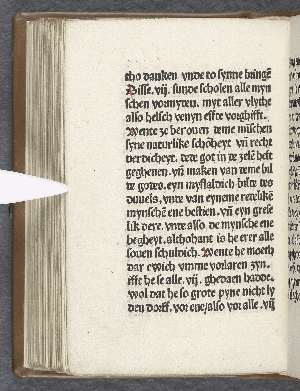 tho danken vnde to synne bringē
Disse .vij. sunde scholen alle myn
schen vormyten. myt aller vlythe
also helsch venyn effte vorghifft.
Wente ze berouen deme mīschen
syne naturlike schōheyt. vñ recht
uerdicheyt. dede got in de zele heft
gegheuen. vñ maken van deme bil
de godes. eyn mysstaldich bilde des
duuels. vnde van eyneme redelikē
mynschē ene bestien. vñ eyn grese
lik dere. vnde also de mynsche ene
begheyt. althohant is he erer alle
souen schuldich. Wente he moeth
dar ewich vmme vorlaren zyn.
effte he se alle .vij. ghedaen hadde.
wol dat he so grote pyne nicht ly
den dorff. vor ene/also vor alle .vij